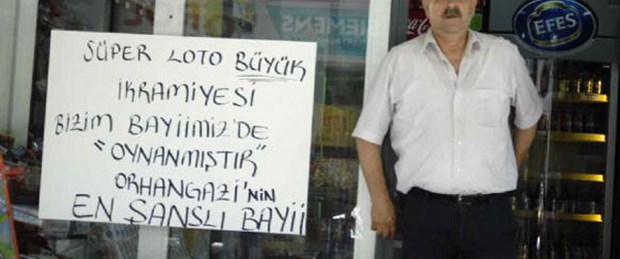 SÜPER LOTO BÜYÜK
İKRAMİYESİ
BİZİM BAYİİMİZ'DE
"OYNANMIŞTIR"
ORHANGAZİ'NİN
EN ŞANSLI BAYİİ
SIEMENS
EFES